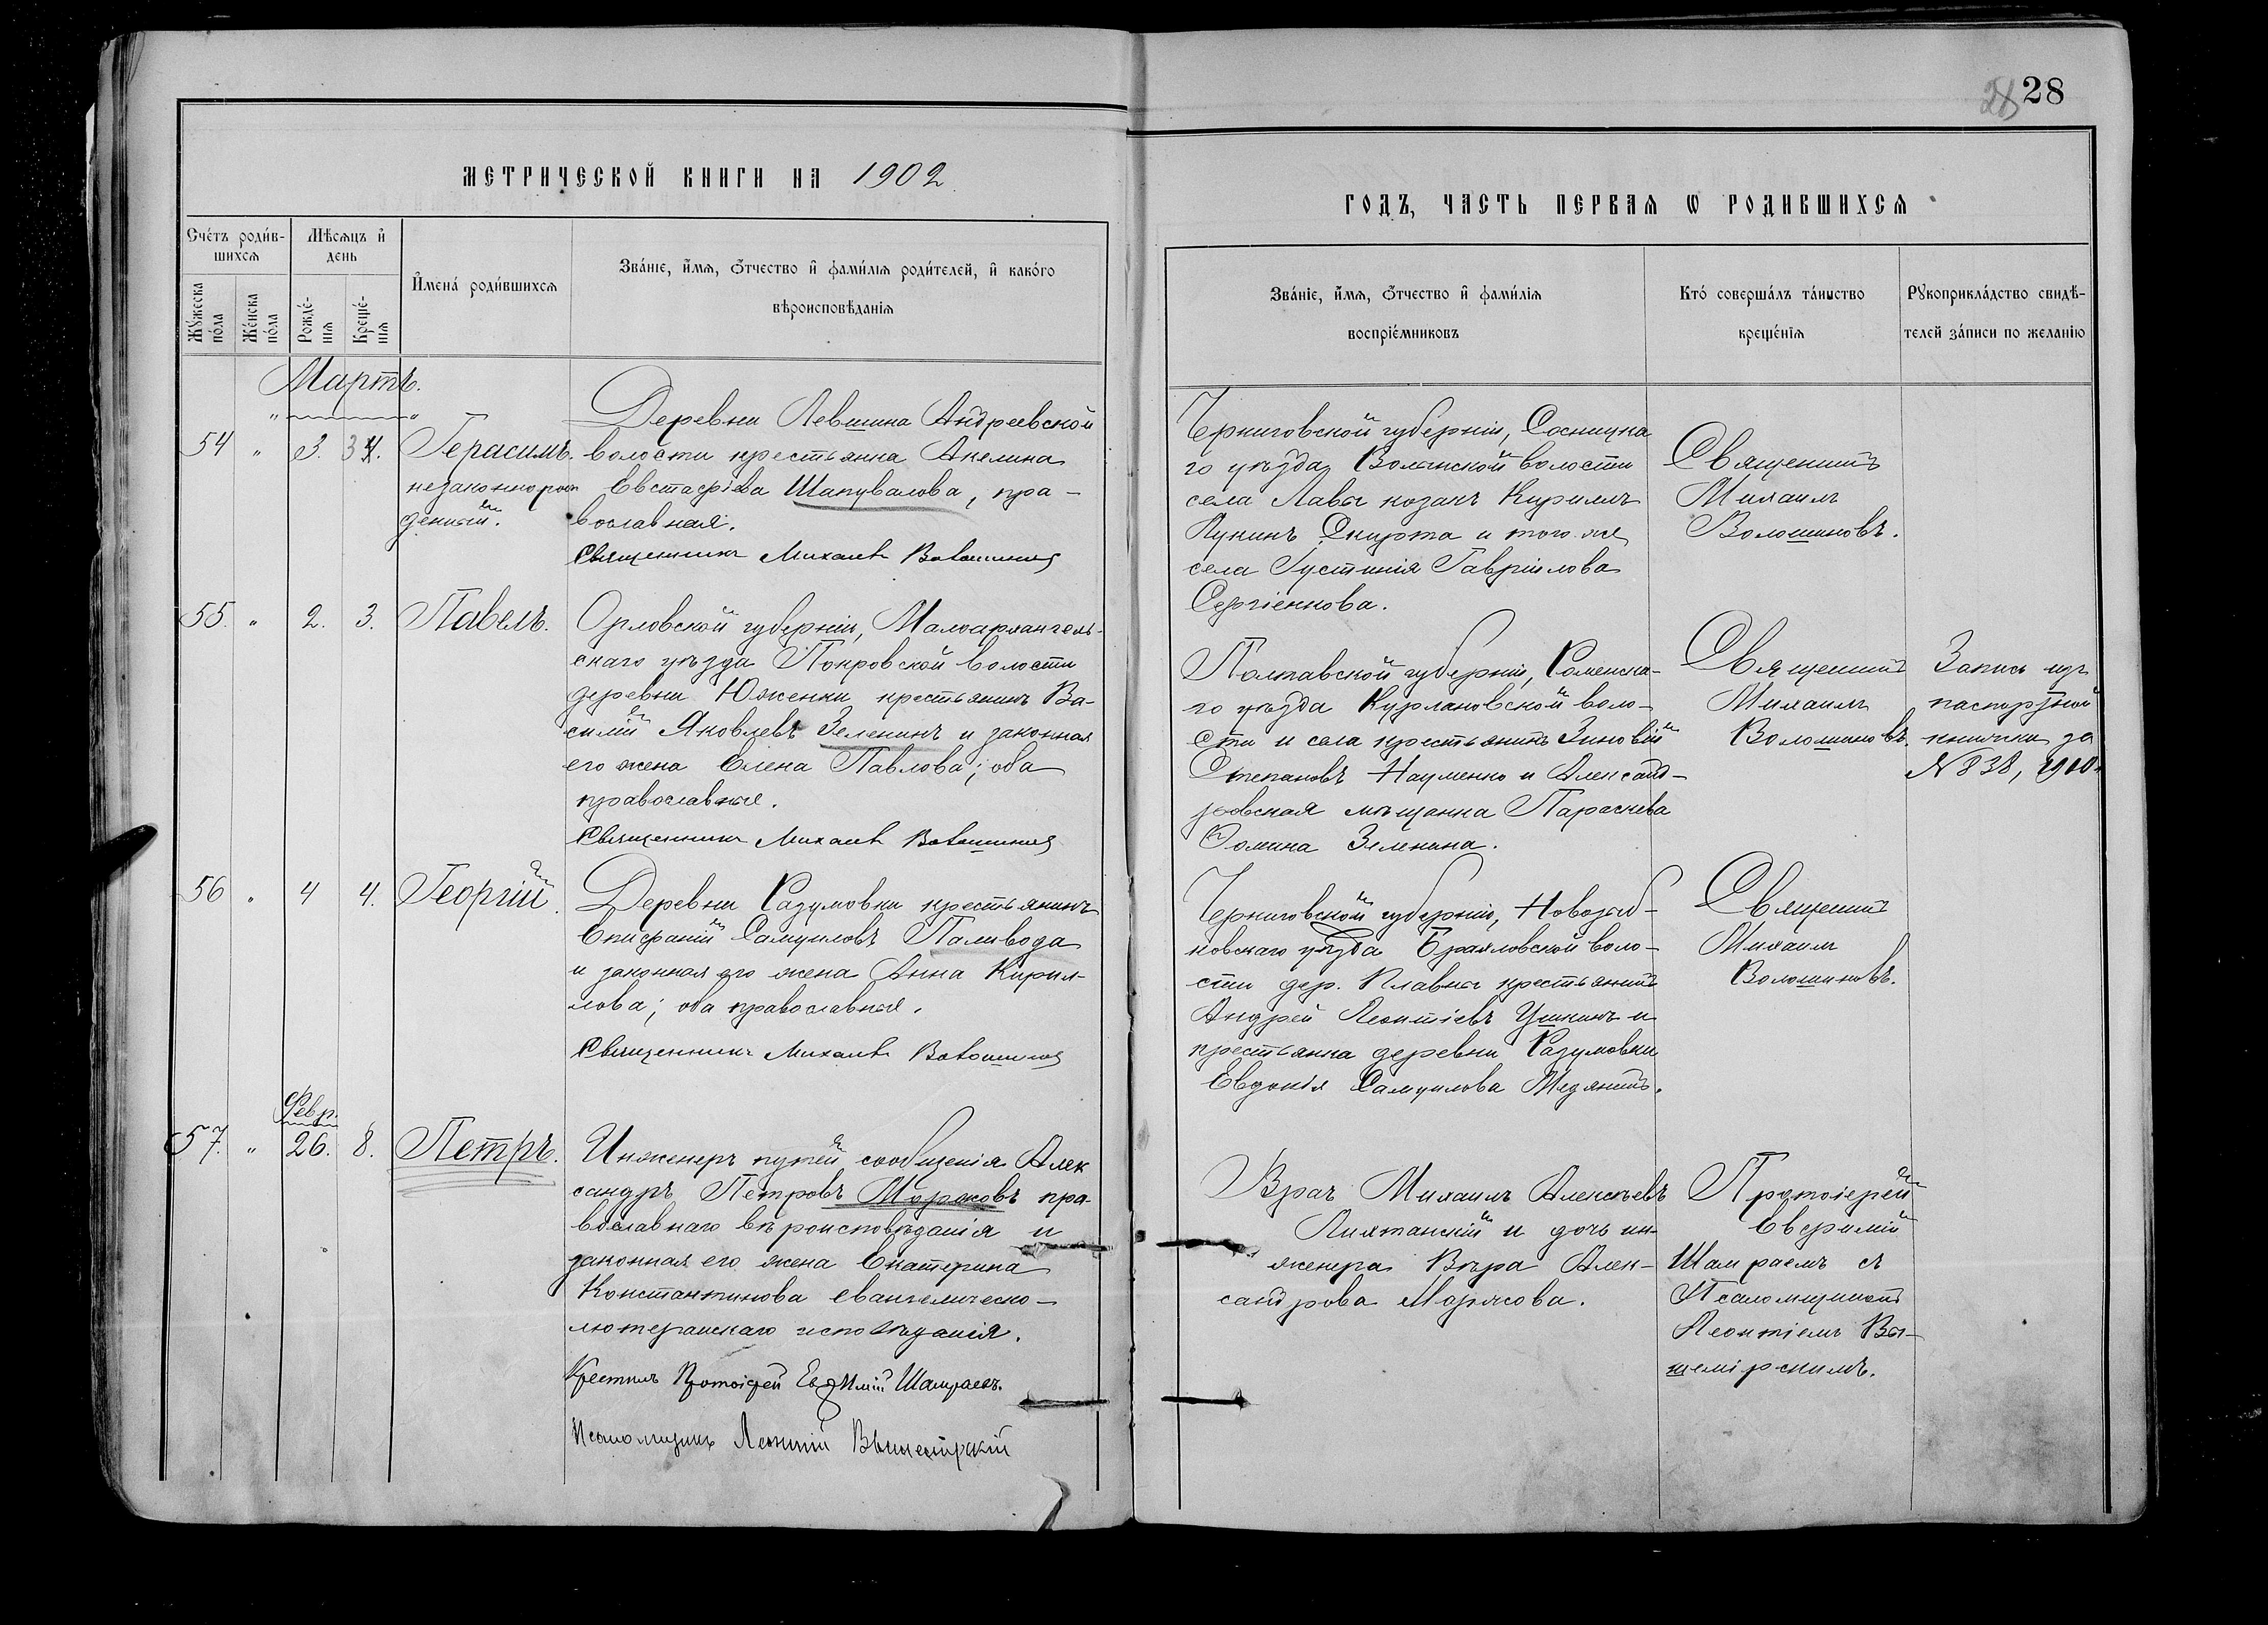 28 28
МЕТРИЧЕСКОЙ КНИГИ НА 1902
ГОДЪ, ЧАСТЬ ПЕРВАЯ Ѡ РОДИВШИХСЯ
Счетъ родив-
шихся
Мужеска пола
Женска пола
Мѣсяцъ и
день
Рожде-
нія
Креще-
нія
Имена родившихся
Званіе, имя, отчество и фамилія родителей, и какого
вѣроисповѣданія
Званіе, имя, отчество и фамилія
воспріемниковъ
Кто совершалъ таинство
крещенія
Рукоприкладство свидѣ-
телей записи по желанію
Мартъ.
54 " 3. 3
Герасимъ.
незаконнорож
денный.
Деревни Левшина Андреевской
волости крестьянка Акелина
Евстафіева Шапувалова, пра-
вославная.
Священникъ Михаилъ Волошиновъ
Черниговской губерніи, Сосницка
го уѣзда Волынской волости
села Лавы козакъ Кириллъ
Лукинъ Скирта и того же
села Іустинія Гавріилова
Сергіенкова.
Священникъ
Михаилъ
Волошиновъ.
55. " 2. 3. Павелъ.
Орловской губерніи, Малоархангель-
скаго уѣзда Покровской волости
деревни Юженки крестьянинъ Ва-
силій Яковлевъ Зеленинъ и законная
его жена Елена Павлова; оба
православные.
Священникъ Михаилъ Волошиновъ
Полтавской губерніи, Роменска-
го уѣзда Курмановской воло-
сти и села крестьянинъ Зиновій
Степановъ Науменко и Александ-
ровская мѣщанка Параскева
Фомина Зеленина.
Священникъ
Михаилъ
Волошиновъ.
Запись изъ
паспортной
книжки за
№ 838, 1900
56 " 4 4. Георгій.
Деревни Разумовки крестьянинъ
Епифаній Самуиловъ Паливода
и законная его жена Анна Кирил-
лова; оба православные.
Священникъ Михаилъ Волошиновъ
Черниговской губерніи, Новозыб-
ковскаго уѣзда Брахловской воло-
сти дер. Плавны крестьянинъ
Андрей Леонтіевъ Ушкинъ и
крестьянка деревни Разумовки
Евдокія Самуилова
Священникъ
Михаилъ
Волошиновъ.
Февр.
57. " 26. 8. Петръ.
Инженеръ путей сообщенія Алек
сандръ Петровъ Марсовъ пра-
вославнаго вѣроисповѣданія и
законная его жена Екатерина
Константинова евангелическо-
лютеранскаго исповѣданія.
Крестилъ Протоіерей Евфимій Шамраевъ.
Псаломщикъ Леонтій Вышемірскій
Врачъ Михаилъ Алексѣевъ
Лихтанскій и дочь ин-
женера Вѣра Алек-
сандрова
Протоіерей
Евфимій
Шамраевъ съ
Псаломщикомъ
Леонтіемъ Вы-
шемірскимъ.